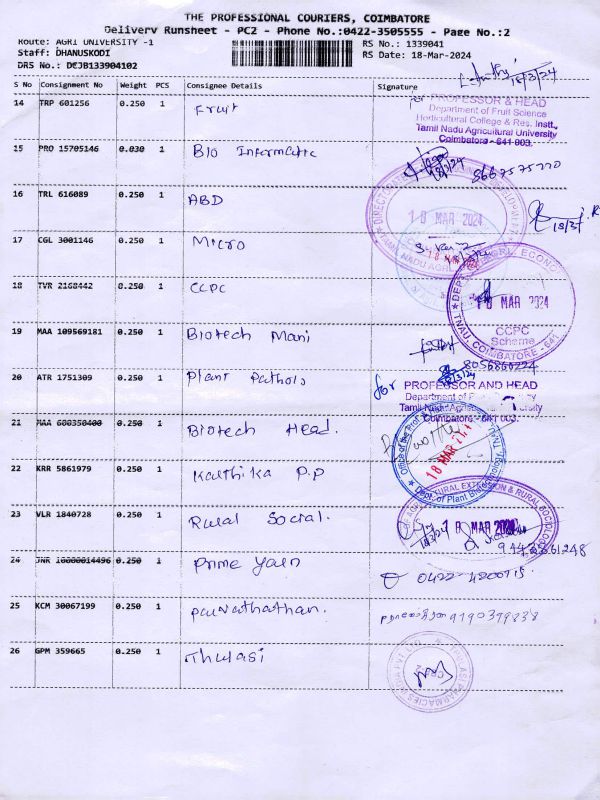 THE PROFESSIONAL COURIERS, COIMBATORE
Delivery Runsheet - PC2 - Phone No.:0422-3505555 - Page No.:2
Route: AGRI UNIVERSITY -1
RS No.: 1339041
Staff: DHANUSKODI
RS Date: 18-Mar-2024
DRS No.: DCJB133904102
S No Consignment No Weight PCS Consignee Details Signature
18/3/24
14 TRP 601256 0.250 1 Fruit
PROFESSOR & HEAD
Department of Fruit Science
Horticultural College & Res. Instt.,
Tamil Nadu Agricultural University
Coimbatore - 641 003.
15 PRO 15705146 0.030 1 Bio Informatic
18/3/24 8667575770
16 TRL 616089 0.250 1 ABD
18 MAR 2024
17 CGL 3001146 0.250 1 Micro
18 TVR 2168442 0.250 1 CCPC
MAR 2024
CCPC
Scheme
TNAU, COIMBATORE - 641
19 MAA 109569181 0.250 1 Biotech Mani
8056860224
20 ATR 1751309 0.250 1 Plant Patholo
for PROFESSOR AND HEAD
Department of
Tamil Nadu Agricultural University
Coimbatore - 641 003.
21 MAA 608350400 0.250 1 Biotech Head.
18 MAR
22 KRR 5861979 0.250 1 Karthika P.P
23 VLR 1840728 0.250 1 Rural Social.
18 MAR 2024
24 JNR 10000014496 0.250 1 Prime Yarn
0422-4200715
25 KCM 30067199 0.250 1 Parvathathan.
9190379838
26 GPM 359665 0.250 1 Thulasi